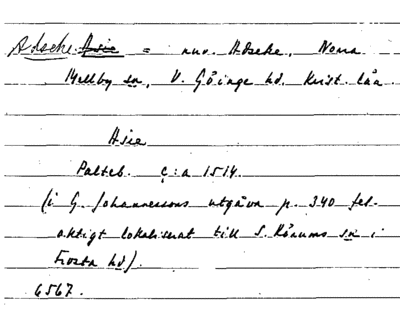 Adseke. Asie = nuv. Adseke, Norra
Mellby sn, V. Göinge hd. Krist. län.
Asie
Palteb. c:a 1514.
(i G. Johannessons utgåva p. 340 fel-
aktigt lokaliserat till S. Rörums sn i
Frosta hd).
6567.